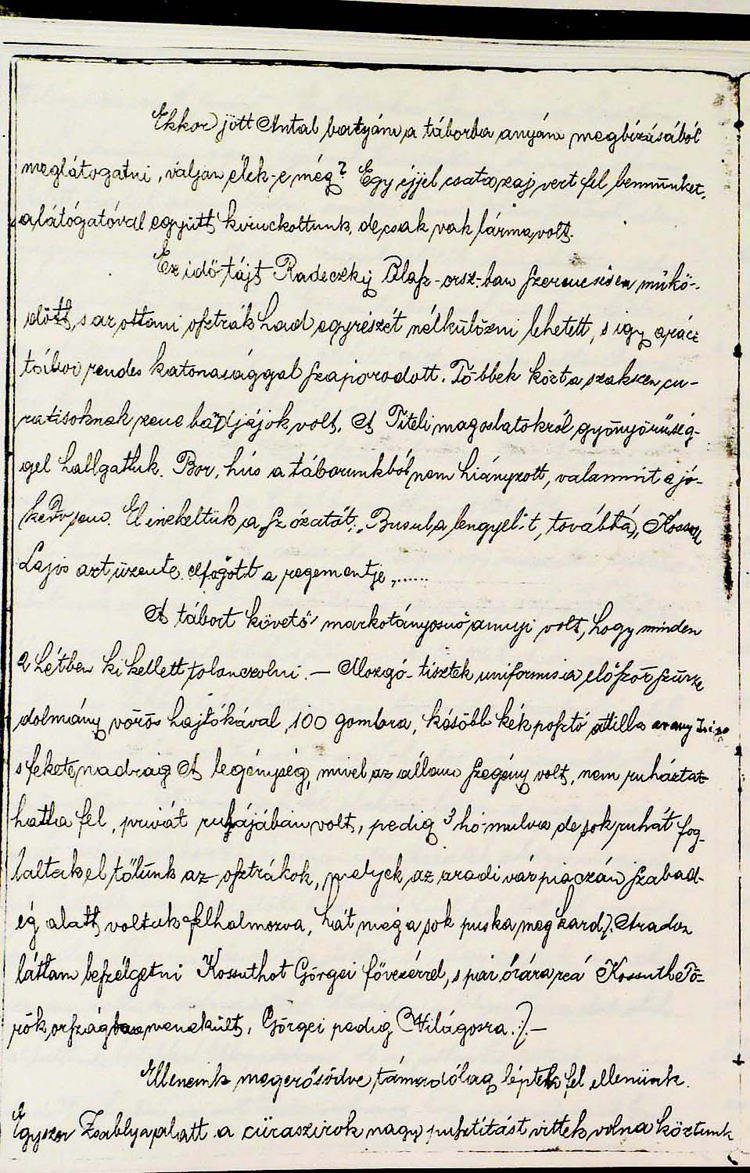 Ekkor jött Antal bartyám a táborba anyám megbizásából
meglátogatni, valjan élek-e még? Egy éjjel csata zaj vert fel bennünket,
a látógatóval együtt kiruckoltunk, de csak vak lárma volt.
Ez idő tájt Radeczky Olasz-orsz-ban szerencsésen műkö-
dött, s az ottani osztrák had egyrészét nélkülözni lehetett, s igy a rácz
tábor rendes katonasággal szaporodott. Többek közt a szakszen cu-
ratisoknak zene bandájájok volt. A Titeli magoslatokról gyönyörűség-
gel hallgattuk. Bor, hús a táborunkból nem hiányzott, valamint a jó-
kedv sem. El énekeltük a „Szózatát", „Busul a lengyel"-t, továbbá, Kossut
Lajos azt üzente elfogott a regementje „......
A tábort követő markotányosnő annyi volt, hogy minden
2 hétben ki kellett tolonczolni. — Mozgó-tisztek uniformisa először szürke
dolmány vörös hajtókával, 100 gombra, később kék posztó attilla arany
s fekete nadrág A legénység, mivel az állam szegény volt, nem ruháztat-
hatta fel, privát ruhájában volt, pedig 3 hó mulva de sok ruhát fog-
laltak el tőlünk az osztrákok, melyek az aradi vár piaczán szabad-
ég alatt voltak felhalmozva, hát még a sok puska meg kard). Aradon
láttam beszélgetni Kossuthot Görgei fővezérrel, s pár órára reá Kossuth Tö-
rök országba menekült, Görgei pedig Világosra.). —
Elleneink megerősödve támadólag léptek fel ellenünk.
Egyszer Zsablya alatt a cüraszirok nagy pusztitást vittek volna köztünk